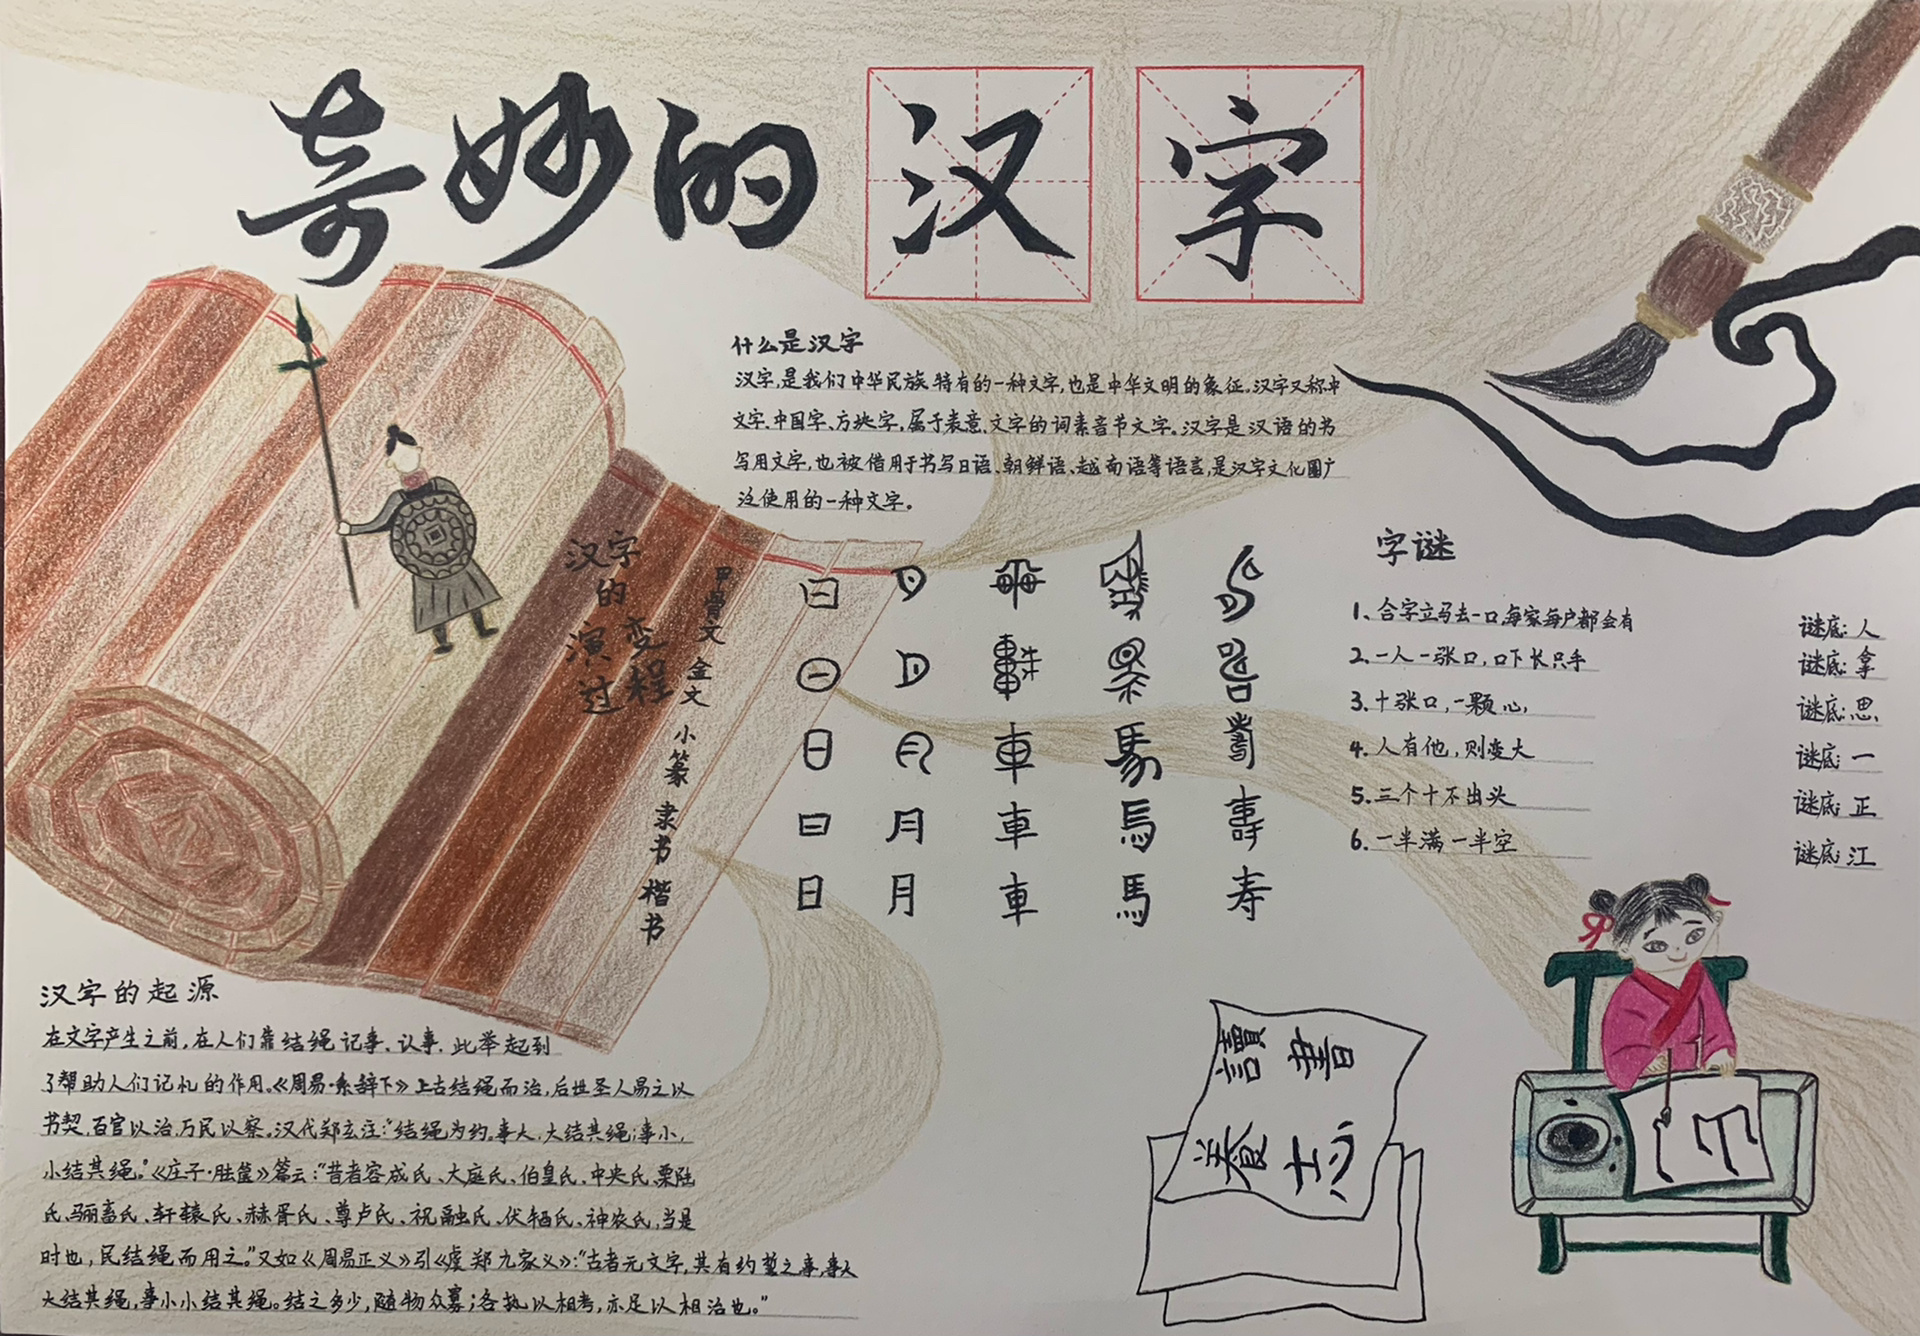 奇妙的汉字
什么是汉字
汉字,是我们中华民族特有的一种文字,也是中华文明的象征。汉字又称中
文字、中国字、方块字,属于表意文字的词素音节文字。汉字是汉语的书
写用文字,也被借用于书写日语、朝鲜语、越南语等语言,是汉字文化圈广
泛使用的一种文字。
汉字
的
演变
过程
甲骨文
金文
小篆
隶书
楷书
日 月 車 馬 寿
日 月 車 馬 壽
日 月 車 馬 壽
日 月 車 馬 壽
日 月 車 馬 寿
字谜
1、合字立马去一口,每家每户都会有 谜底:人
2.一人一张口,口下长只手 谜底:拿
3.十张口,一颗心, 谜底:思
4.人有他,则变大 谜底:一
5.三个十不出头 谜底:正
6.一半满一半空 谜底:江
汉字的起源
在文字产生之前,在人们靠结绳记事、认事,此举起到
了帮助人们记札的作用。《周易·系辞下》上古结绳而治,后世圣人易之以
书契,百官以治,万民以察。汉代郑玄注:"结绳为约,事大,大结其绳;事小,
小结其绳。"《庄子·胠箧》篇云:"昔者容成氏、大庭氏、伯皇氏、中央氏、栗陆
氏、骊畜氏、轩辕氏、赫胥氏、尊卢氏、祝融氏、伏牺氏、神农氏,当是
时也,民结绳而用之。"又如《周易正义》引《虞郑九家义》:"古者无文字,其有约誓之事,事大
大结其绳,事小小结其绳。结之多少,随物众寡;各执以相考,亦足以相治也。"
讀書
養志